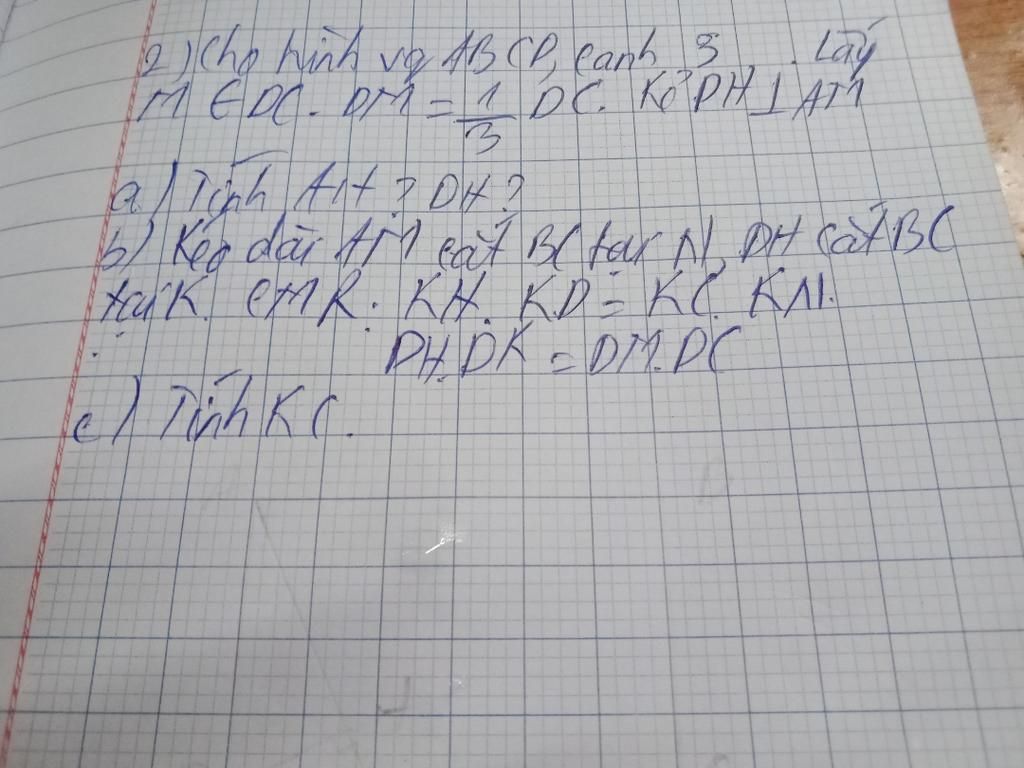 2) Cho hình vg ABCD, cạnh 3. Lấy
M ∈ DC. DM = 1/3 DC. Kẻ DH ⊥ AM
a) Tính AH? DH?
b) Kéo dài AM cắt BC tại N, DH cắt BC
tại K. CMR: KH. KD = KC. KN.
DH.DK = DM.DC
c) Tính KC.